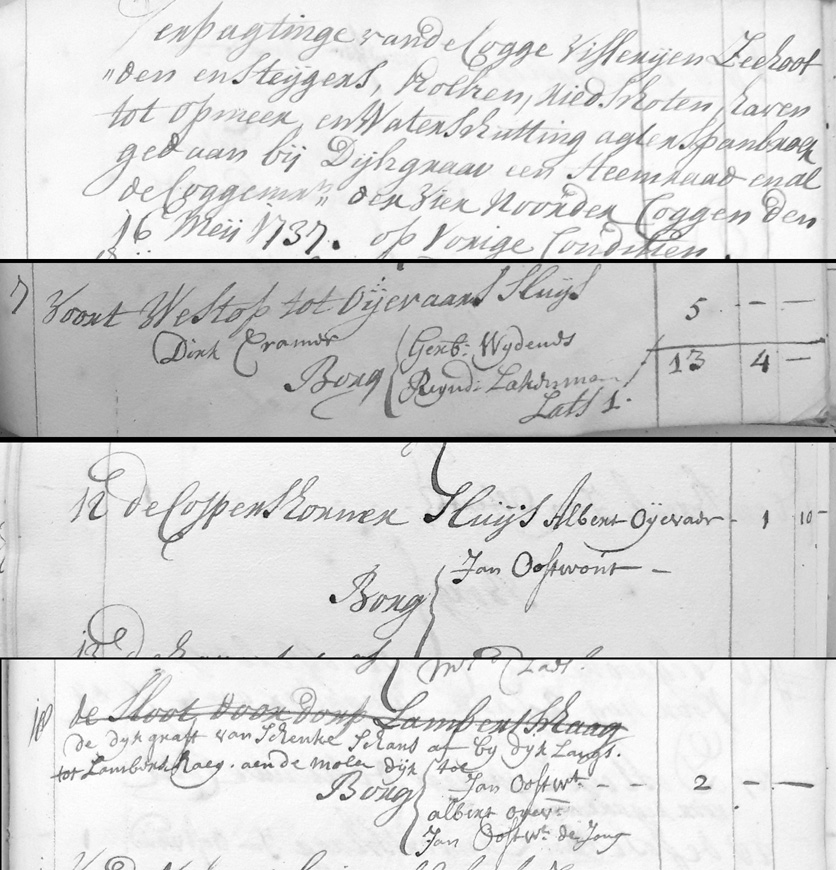 Verpagtinge vande Cogge Visserijen Zeekoot
"den en Steijgers, Kolken, Ried Skoten, haven
tot opmeer, en WaterSkutting agter Spanbroek
gedaan bij Dijkgraav een Heemraad en al
de Coggemrs,, der Vier Noorder Coggen den
16 Meij 1737. op Vorige Conditien
7 Voort Westop tot Oijevaars Sluijs 5 - -
Dirk Cramer 13 4 -
Borg Gerb: Wydenes
Reynd: Lakeman
Lats 1
12 de Cospers Korner Sluijs Albert Oyevaar - 1 10 -
Jan Oostwout -
Borg
18 de Sloot, door dorp Lambertskaag
de dyk graft van Schenke Schans af by dyk Langs.
tot Lambertskaeg. aen de molen dyk toe
Jan Oostwt. - - 2 - -
Borg
albert oyev:
Jan Oostwt. de Jong